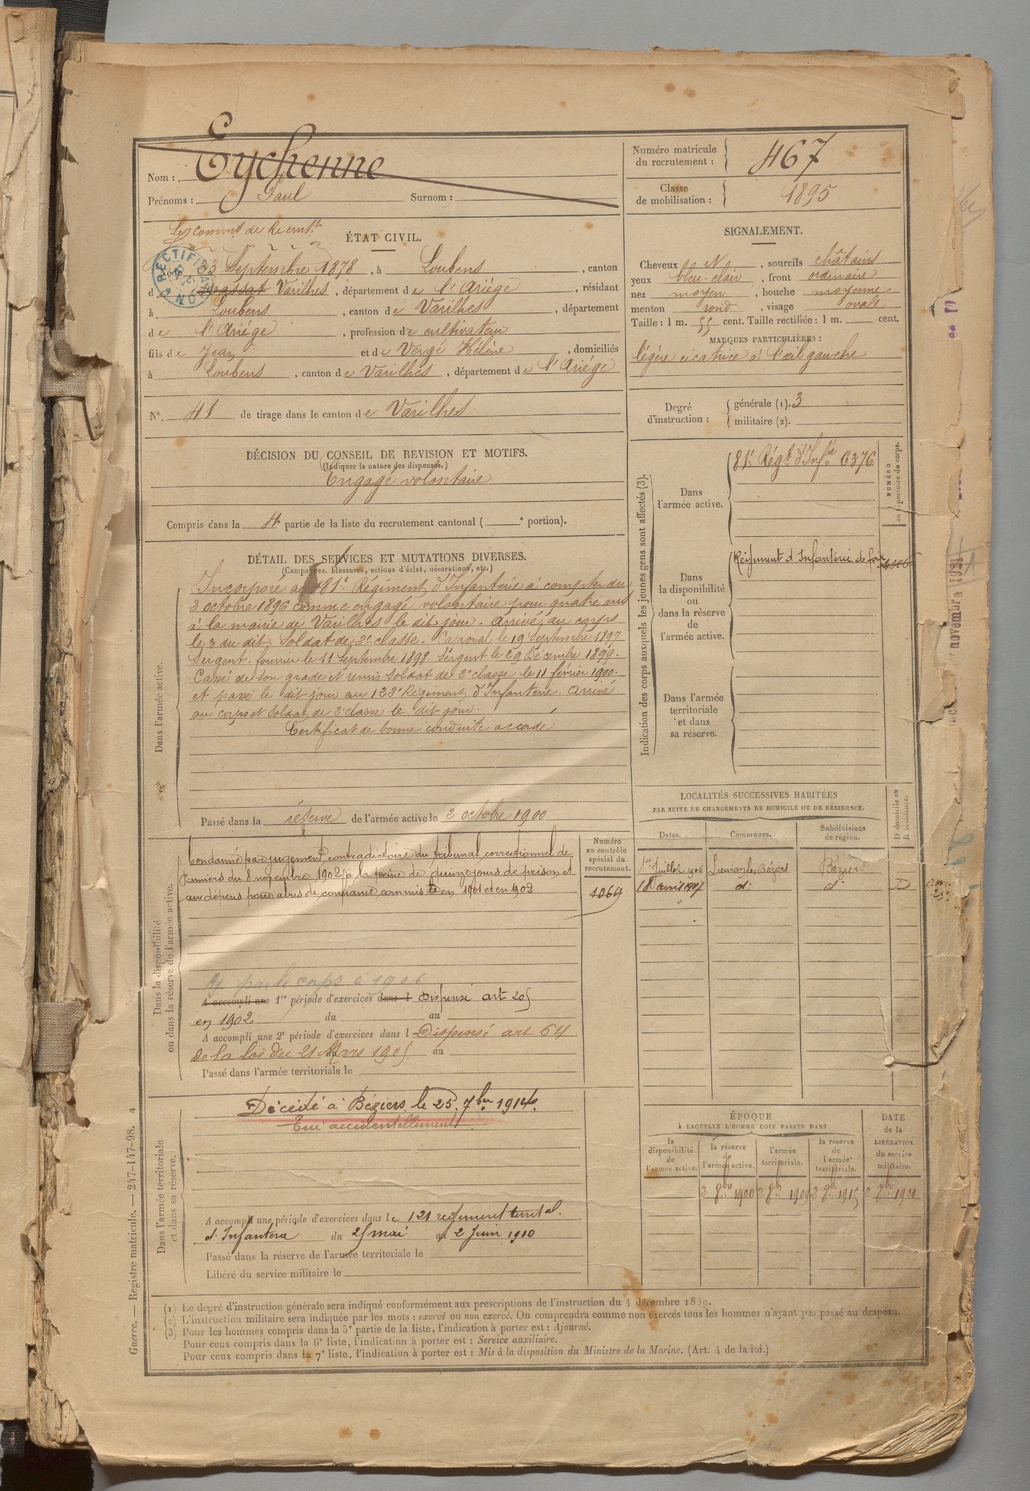 Nom : Eychenne
Prénoms : Paul Surnom :
Numéro matricule du recrutement : 467
Classe de mobilisation : 1895
ÉTAT CIVIL.
Septembre 1878, à Loubens, canton
d Massat Varilhes, département de l'Ariège, résidant
à Loubens, canton de Varilhes, département
de l'Ariège, profession de cultivateur
fils de Jean et de Vergé Hélène, domiciliés
à Loubens, canton de Varilhes, département de l'Ariège
N° 41 de tirage dans le canton de Varilhes
SIGNALEMENT.
Cheveux N, sourcils châtains
yeux bleu clair, front ordinaire
nez moyen, bouche moyenne
menton rond, visage ovale
Taille : 1 m. 55 cent. Taille rectifiée : 1 m. cent.
MARQUES PARTICULIÈRES :
légère cicatrice à l'œil gauche
Degré d'instruction : générale (1). 3
militaire (2).
DÉCISION DU CONSEIL DE REVISION ET MOTIFS.
(Indiquer la nature des dispenses.)
Engagé volontaire
Compris dans la 4e partie de la liste du recrutement cantonal ( e portion).
DÉTAIL DES SERVICES ET MUTATIONS DIVERSES.
(Campagnes, blessures, actions d'éclat, décorations, etc.)
Dans l'armée active.
Incorporé au 81e Régiment d'Infanterie à compter du
2 octobre 1896 comme engagé volontaire pour quatre ans
à la mairie de Varilhes le dit jour. Arrivé au corps
le 3 du dit. Soldat de 2e classe. Caporal le 19 Septembre 1897
Sergent-fourrier le 11 Septembre 1898 Sergent le 29 Décembre 1899.
Cassé de son grade et remis soldat de 2e classe le 11 février 1900.
et passé le dit jour au 122e Régiment d'Infanterie. Arrivé
au corps et soldat de 2e classe le dit jour.
Certificat de bonne conduite accordé
Passé dans la réserve de l'armée active le 2 octobre 1900
Indication des corps auxquels les jeunes gens sont affectés (3).
NUMÉRO au répertoire du corps.
Dans l'armée active.
81e Régt d'Infie 6376
Dans la disponibilité ou dans la réserve de l'armée active.
Régiment d'Infanterie de foix
Dans l'armée territoriale et dans sa réserve.
Dans la disponibilité ou dans la réserve de l'armée active.
Condamné par jugement contradictoire du tribunal correctionnel de
Pamiers du 8 novembre 1902 à la peine de quinze jours de prison et
aux dépens pour abus de confiance commis en 1901 et en 1902
Numéro au contrôle spécial du recrutement.
1969
A accompli une 1re période d'exercices dans l dispensé art
en 1902 du au
A accompli une 2e période d'exercices dans l Dispensé art 64
de la loi du 21 Mars 1905 au
Passé dans l'armée territoriale le
LOCALITÉS SUCCESSIVES HABITÉES
PAR SUITE DE CHANGEMENTS DE DOMICILE OU DE RÉSIDENCE.
Dates. Communes. Subdivisions de région. D domicile ou R résidence.
Juillet 1906 Lieuran les Béziers Béziers
18 avril 1907 d° d° D
Dans l'armée territoriale et dans sa réserve.
Décédé à Béziers le 25 7bre 1914.
Tué accidentellement
A accompli une période d'exercices dans le 121 régiment territal.
d'Infanterie du 25 mai au 2 Juin 1910
Passé dans la réserve de l'armée territoriale le
Libéré du service militaire le
ÉPOQUE
À LAQUELLE L'HOMME DOIT PASSER DANS
la disponibilité de l'armée active. la réserve de l'armée active. l'armée territoriale. la réserve de l'armée territoriale.
DATE de la LIBÉRATION du service militaire.
2 8bre 1900 2 8bre 1909 2 8bre 1915 2 8bre 1921
(1) Le degré d'instruction générale sera indiqué conformément aux prescriptions de l'instruction du 4 décembre 1889.
(2) L'instruction militaire sera indiquée par les mots : exercé ou non exercé. On comprendra comme non exercés tous les hommes n'ayant pas passé au drapeau.
(3) Pour les hommes compris dans la 5e partie de la liste, l'indication à porter est : Ajourné.
Pour ceux compris dans la 6e liste, l'indication à porter est : Service auxiliaire.
Pour ceux compris dans la 7e liste, l'indication à porter est : Mis à la disposition du Ministre de la Marine. (Art. 4 de la loi.)
Guerre. — Registre matricule. — 247-147-98.
novembre 1921